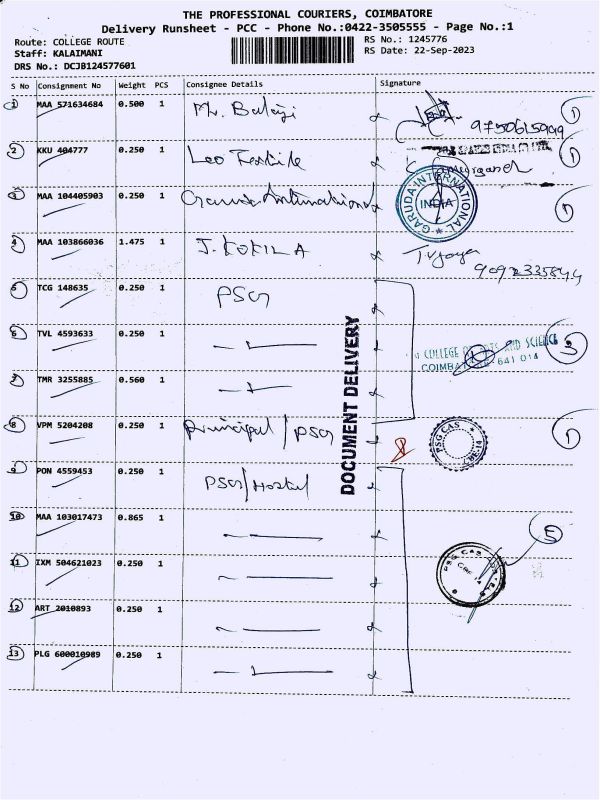 THE PROFESSIONAL COURIERS, COIMBATORE
Delivery Runsheet - PCC - Phone No.:0422-3505555 - Page No.:1
Route: COLLEGE ROUTE
RS No.: 1245776
Staff: KALAIMANI
RS Date: 22-Sep-2023
DRS No.: DCJB124577601
S No Consignment No Weight PCS Consignee Details Signature
1 MAA 571634684 0.500 1 Mr. Balaji 1
2 KKU 404777 0.250 1 Leo Textile 1
3 MAA 104405903 0.250 1 GARUDA INTERNATIONAL INDIA 1
4 MAA 103866036 1.475 1 J. KOKILA
5 TCG 148635 0.250 1 PSG
6 TVL 4593633 0.250 1 COLLEGE OF ARTS AND SCIENCE 3
COIMBATORE 641 014
7 TMR 3255885 0.560 1
DOCUMENT DELIVERY
8 VPM 5204208 0.250 1 Principal / PSG PSG CAS 1
9 PON 4559453 0.250 1 PSG/Hostel
10 MAA 103017473 0.865 1 5
11 IXM 504621023 0.250 1 PSG CAS
12 ART 2010893 0.250 1
13 PLG 600010989 0.250 1